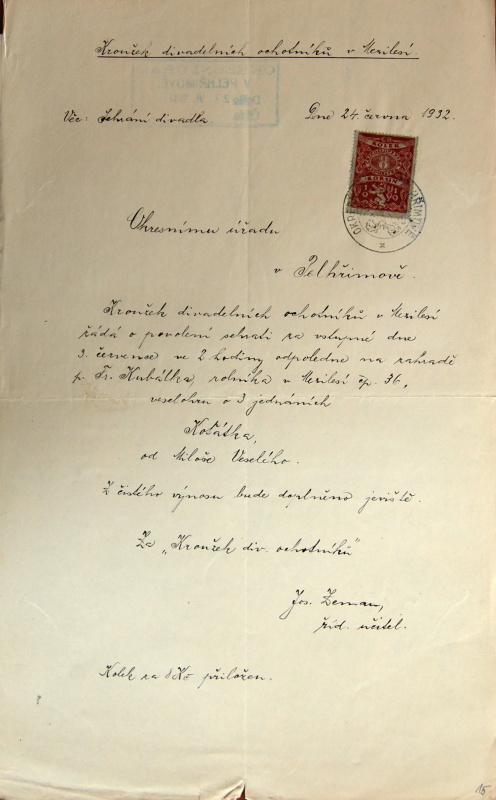 Kroužek divadelních ochotníků v Mezilesí.
V PELHŘIMOVĚ
Došlo
Věc: Sehrání divadla.
Dne 24. června 1932.
KOLEK
8
KORUN
Okresnímu úřadu
v Pelhřimově.
Kroužek divadelních ochotníků v Mezilesí
žádá o povolení sehrati za vstupné dne
3. července ve 2 hodiny odpoledne na zahradě
p. Fr. Kubátka, rolníka v Mezilesí čp. 36,
veselohru o 3 jednáních
Koťátka,
od Miloše Veselého.
Z čistého výnosu bude doplněno jeviště.
Za „Kroužek div. ochotníků"
Jos. Zeman,
říd. učitel.
Kolek za 8 Kč přiložen.
15